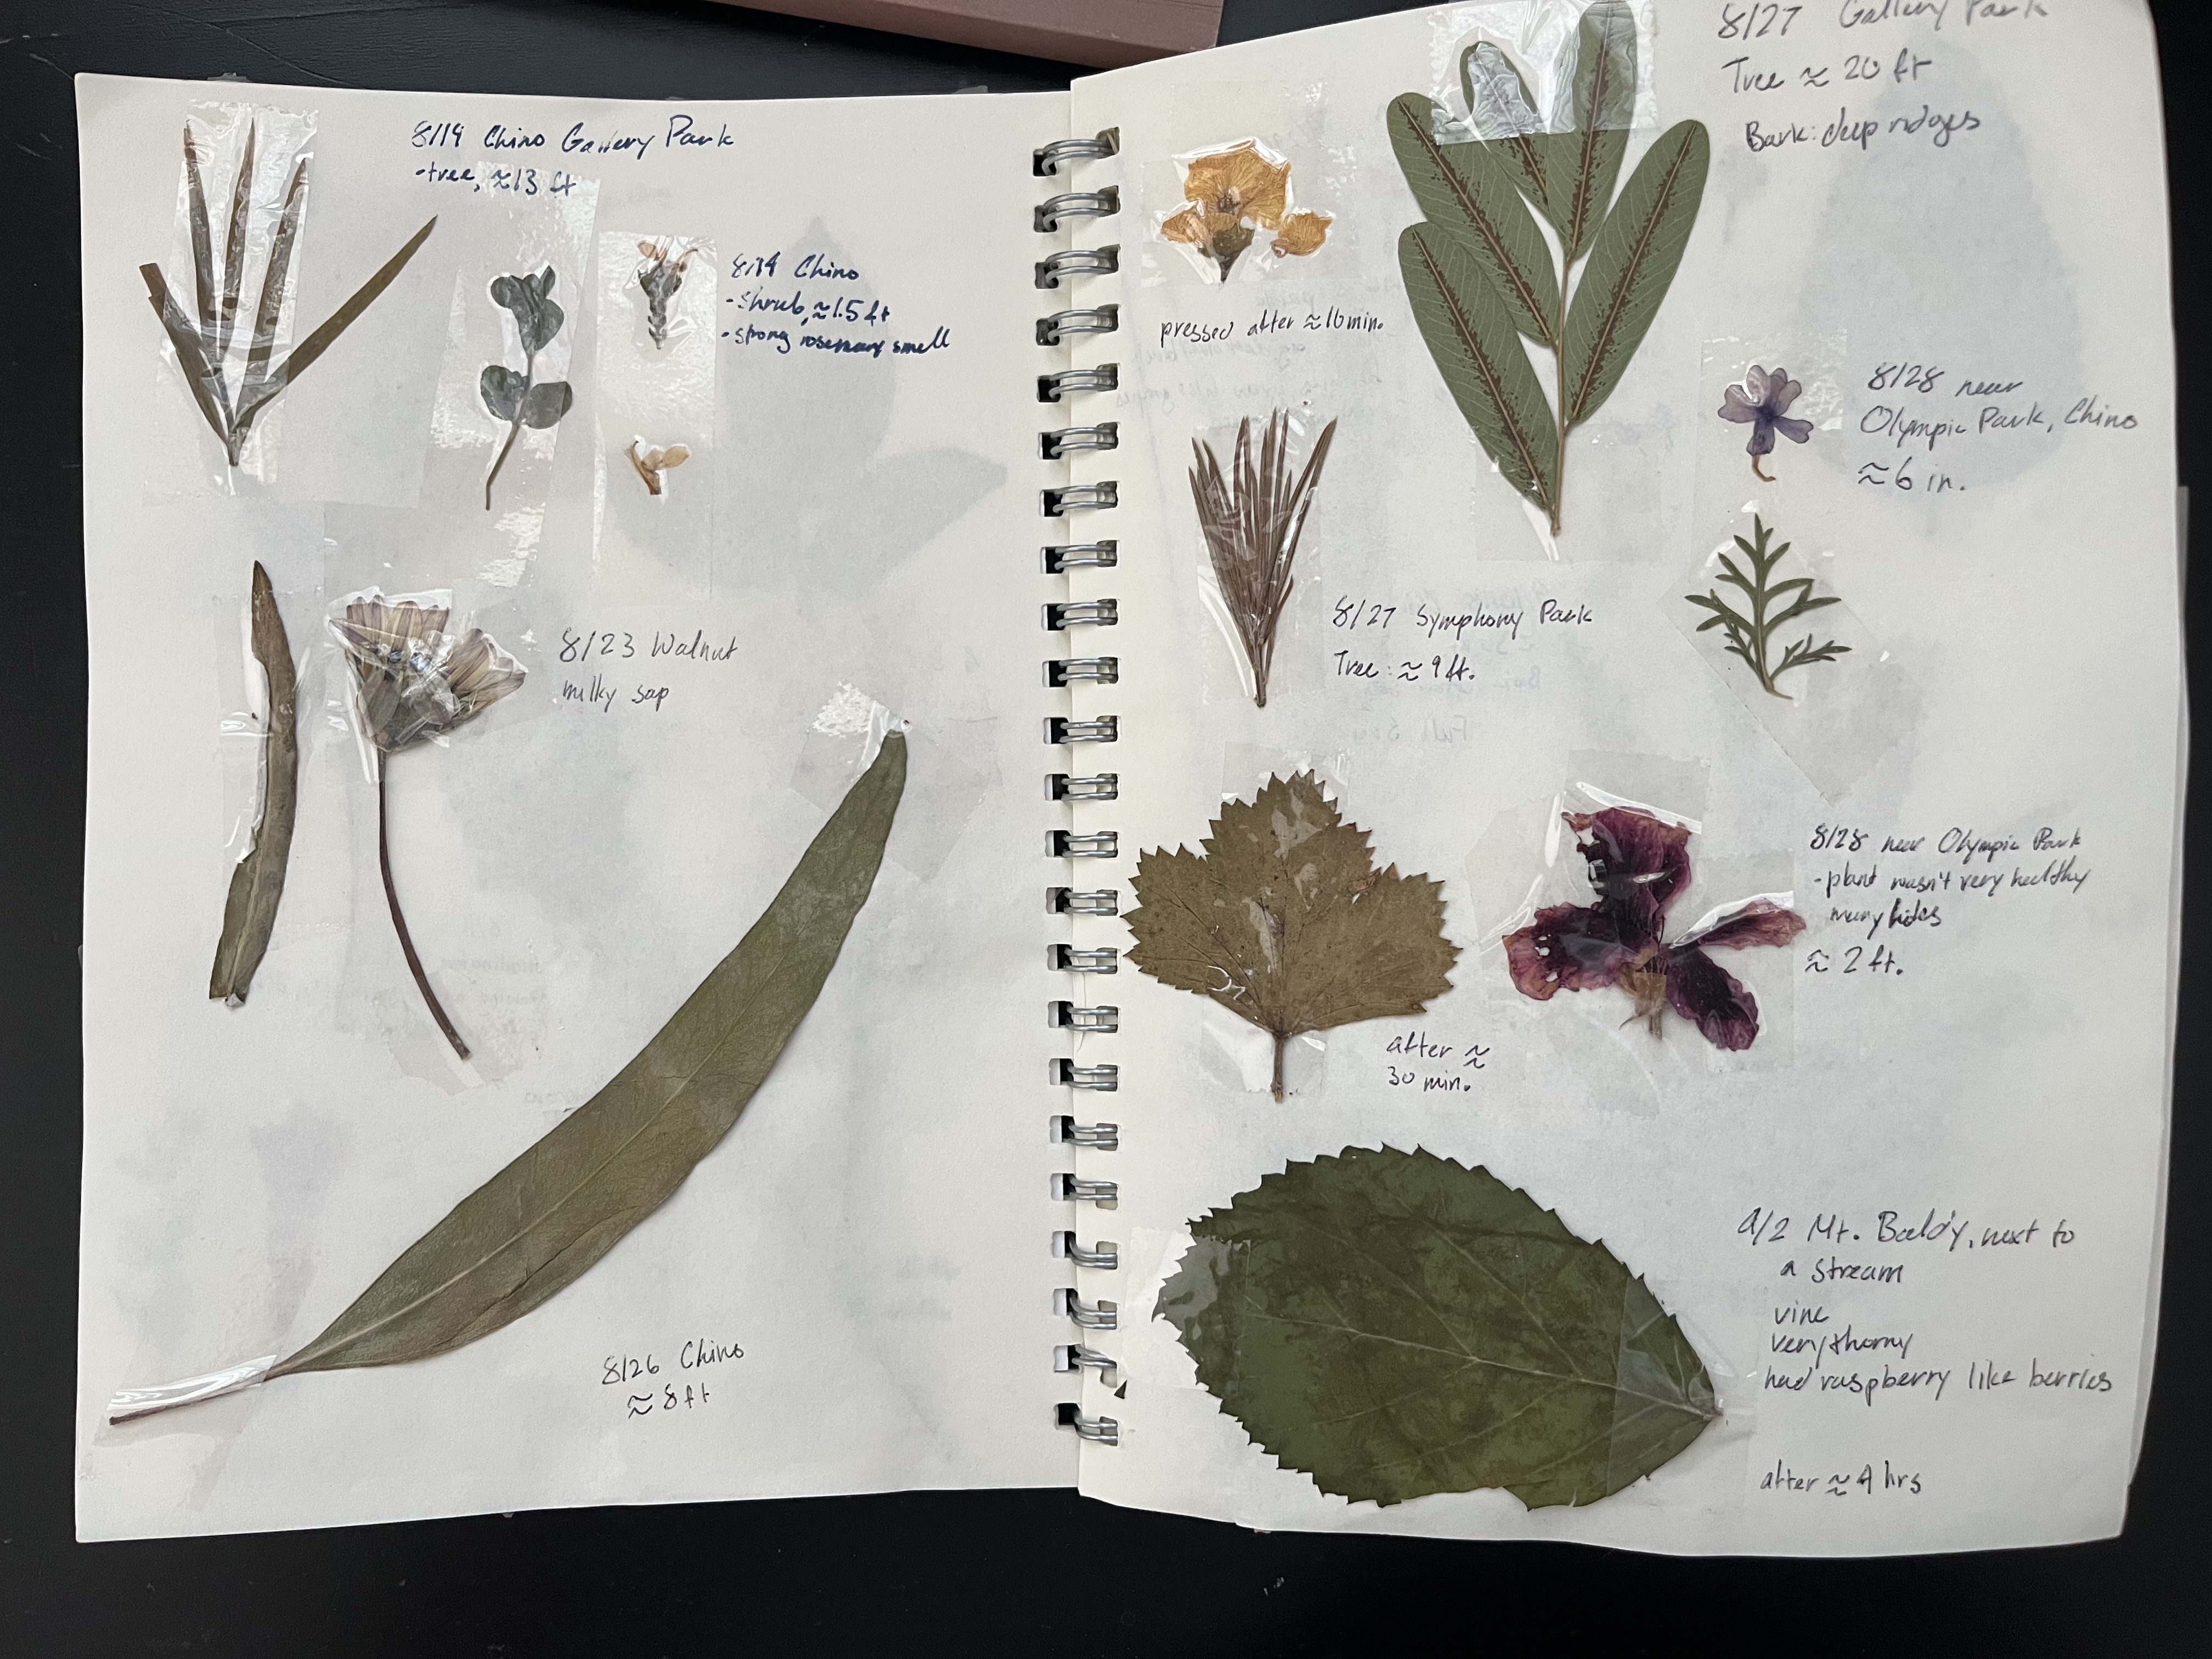 8/19 Chino Gallery Park
-tree, ≈13 ft
8/19 Chino
-shrub, ≈1.5 ft
-strong rosemary smell
8/23 Walnut
milky sap
8/26 Chino
≈ 8 ft
8/27 Gallery Park
Tree ≈ 20 ft
Bark: deep ridges
pressed after ≈10min.
8/28 near
Olympic Park, Chino
≈6 in.
8/27 Symphony Park
Tree: ≈ 9 ft.
8/28 near Olympic Park
-plant wasn't very healthy
many holes
≈ 2 ft.
after ≈
30 min.
9/2 Mt. Baldy, next to
a stream
vine
very thorny
had raspberry like berries
after ≈ 4 hrs